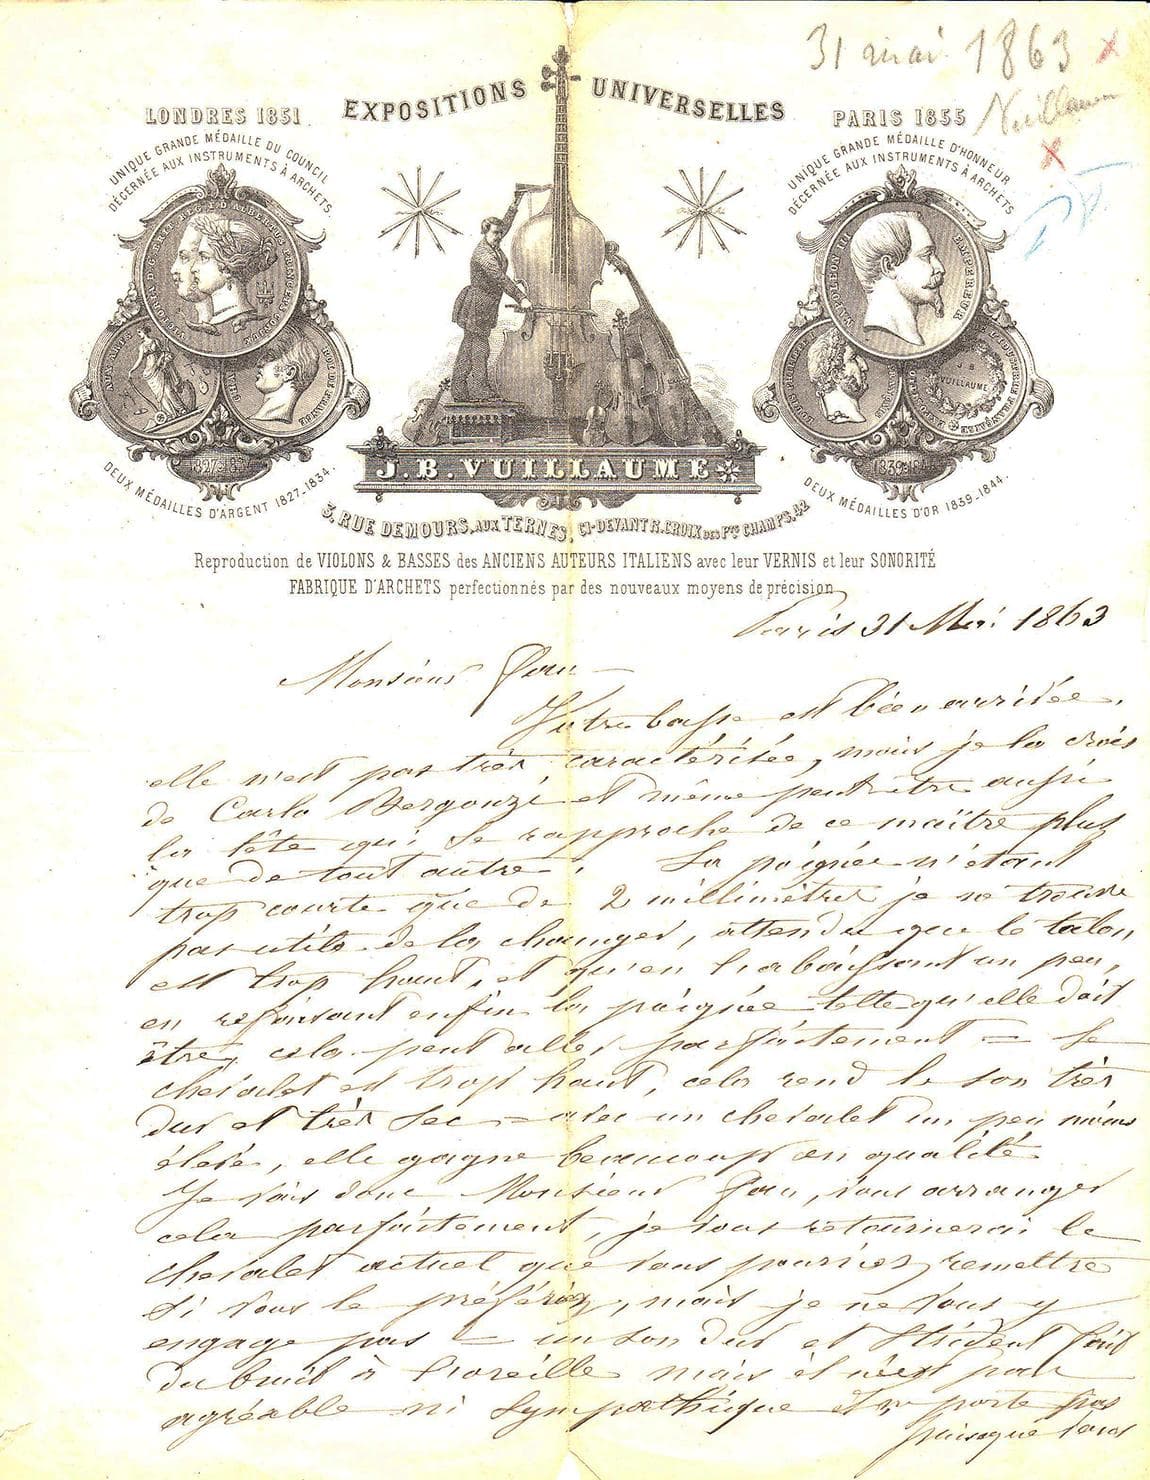 31 mai 1863
Vuillaume
EXPOSITIONS UNIVERSELLES
LONDRES 1851
UNIQUE GRANDE MÉDAILLE DU COUNCIL
DÉCERNÉE AUX INSTRUMENTS À ARCHETS
PARIS 1855
UNIQUE GRANDE MÉDAILLE D'HONNEUR
DÉCERNÉE AUX INSTRUMENTS À ARCHETS
NAPOLEON III EMPEREUR
J B
VUILLAUME
1827-
1839-
DEUX MÉDAILLES D'ARGENT 1827-1834.
DEUX MÉDAILLES D'OR 1839-1844.
J. B. VUILLAUME
3, RUE DEMOURS, AUX TERNES, CI-DEVANT R. CROIX DES PTS CHAMPS, 42
Reproduction de VIOLONS & BASSES des ANCIENS AUTEURS ITALIENS avec leur VERNIS et leur SONORITÉ
FABRIQUE D'ARCHETS perfectionnés par des nouveaux moyens de précision
Paris 31 Mai 1863
Monsieur
Votre basse est bien arrivée,
elle n'est pas très caractérisée, mais je la crois
de Carlo Bergonzi et même peut être aussi
la tête qui se rapproche de ce maître plus
que de tout autre. La poignée n'étant
trop courte que de 2 millimètres je ne trouve
pas utile de la changer, attendu que le talon
est trop haut, et qu'en l'abaissant un peu,
en refaisant enfin la poignée telle qu'elle doit
être, cela peut aller parfaitement = Le
chevalet est trop haut, cela rend le son très
dur et très sec = avec un chevalet un peu moins
élevé, elle gagne beaucoup en qualité
Je vais donc Monsieur vous arranger
cela parfaitement, je vous retournerai le
chevalet actuel que vous pourriez remettre
si vous le préférez, mais je ne vous y
engage pas = un son dur et strident fait
du bruit à l'oreille mais il n'est pas
agréable ni sympathique porte pas
puisque vous